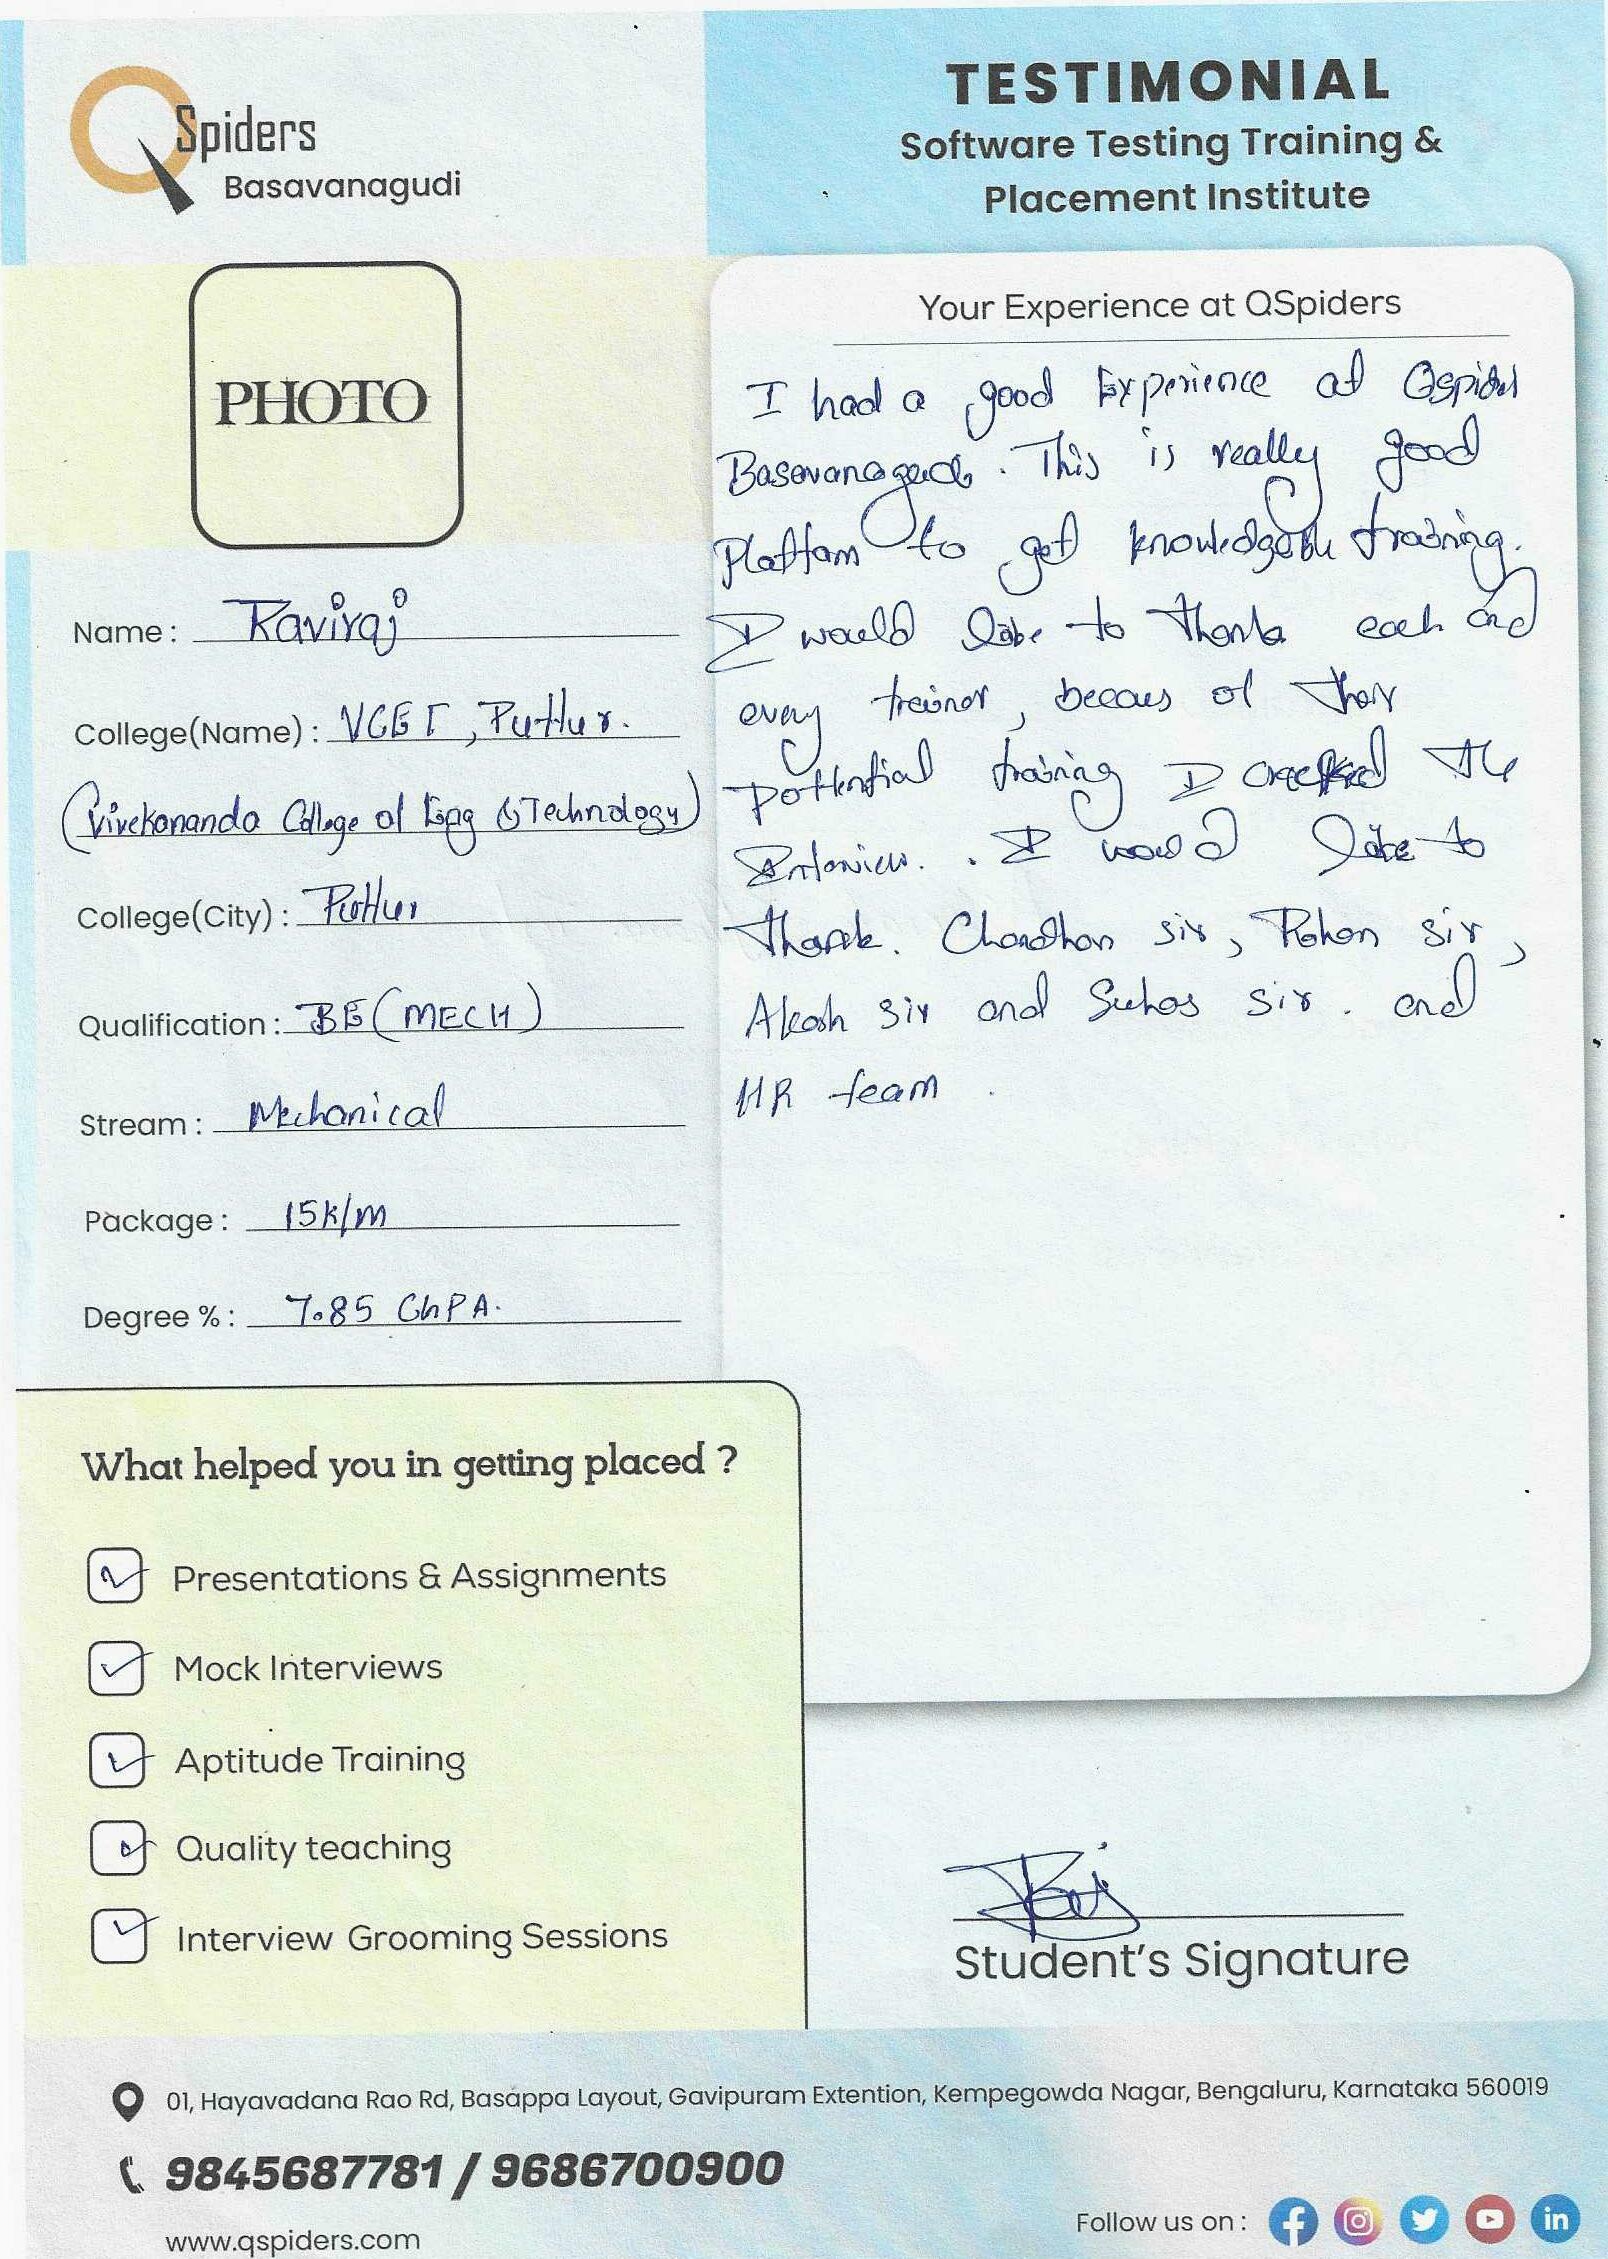 QSpiders
Basavanagudi
TESTIMONIAL
Software Testing Training &
Placement Institute
PHOTO
Name : Raviraj
College(Name) : VCET, Puttur.
(Vivekananda College of Engg & Technology)
College(City) : Puttur
Qualification : BE (MECH)
Stream : Mechanical
Package : 15k/m
Degree % : 7.85 CGPA.
Your Experience at QSpiders
I had a good Experience at Qspiders
Basavanagudi. This is really good
Platfam to get knowledgable training.
I would like to Thank each and
every treinor, becaus of their
pottential training I cracked the
Interview. . I would like to
thank. Chandhan sir, Rohan sir,
Akash sir and Suhas sir. and
HR team .
What helped you in getting placed ?
Presentations & Assignments
Mock Interviews
Aptitude Training
Quality teaching
Interview Grooming Sessions
Student's Signature
01, Hayavadana Rao Rd, Basappa Layout, Gavipuram Extention, Kempegowda Nagar, Bengaluru, Karnataka 560019
9845687781 / 9686700900
www.qspiders.com
Follow us on :